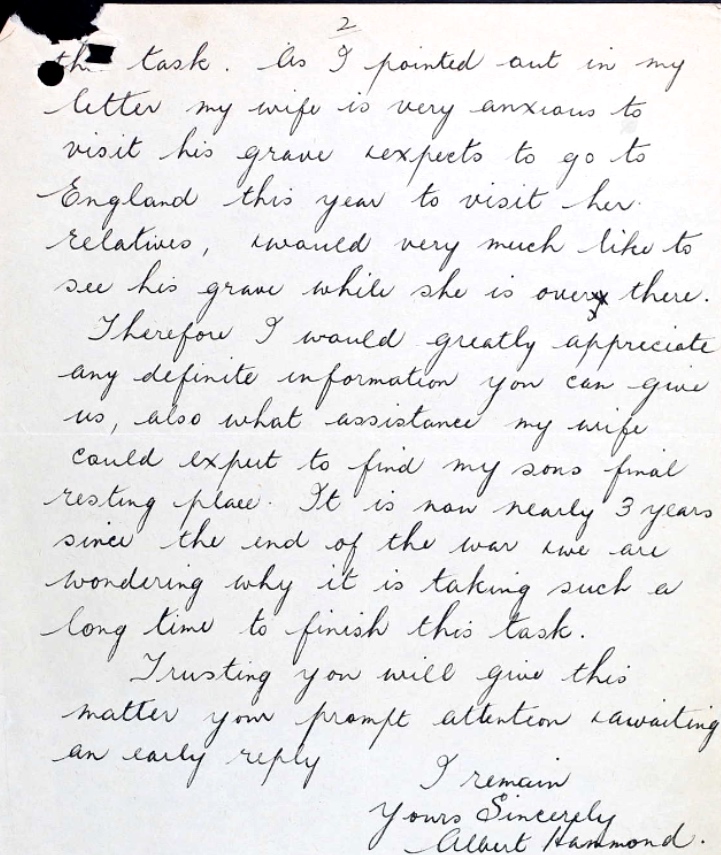 2
the task. As I pointed out in my
letter my wife is very anxious to
visit his grave &expects to go to
England this year to visit her
relatives, &would very much like to
see his grave while she is over there.
Therefore I would greatly appreciate
any definite information you can give
us, also what assistance my wife
could expect to find my sons final
resting place. It is now nearly 3 years
since the end of the war &we are
wondering why it is taking such a
long time to finish this task.
Trusting you will give this
matter your prompt attention &awaiting
an early reply
I remain
Yours Sincerely
Albert Hammond.